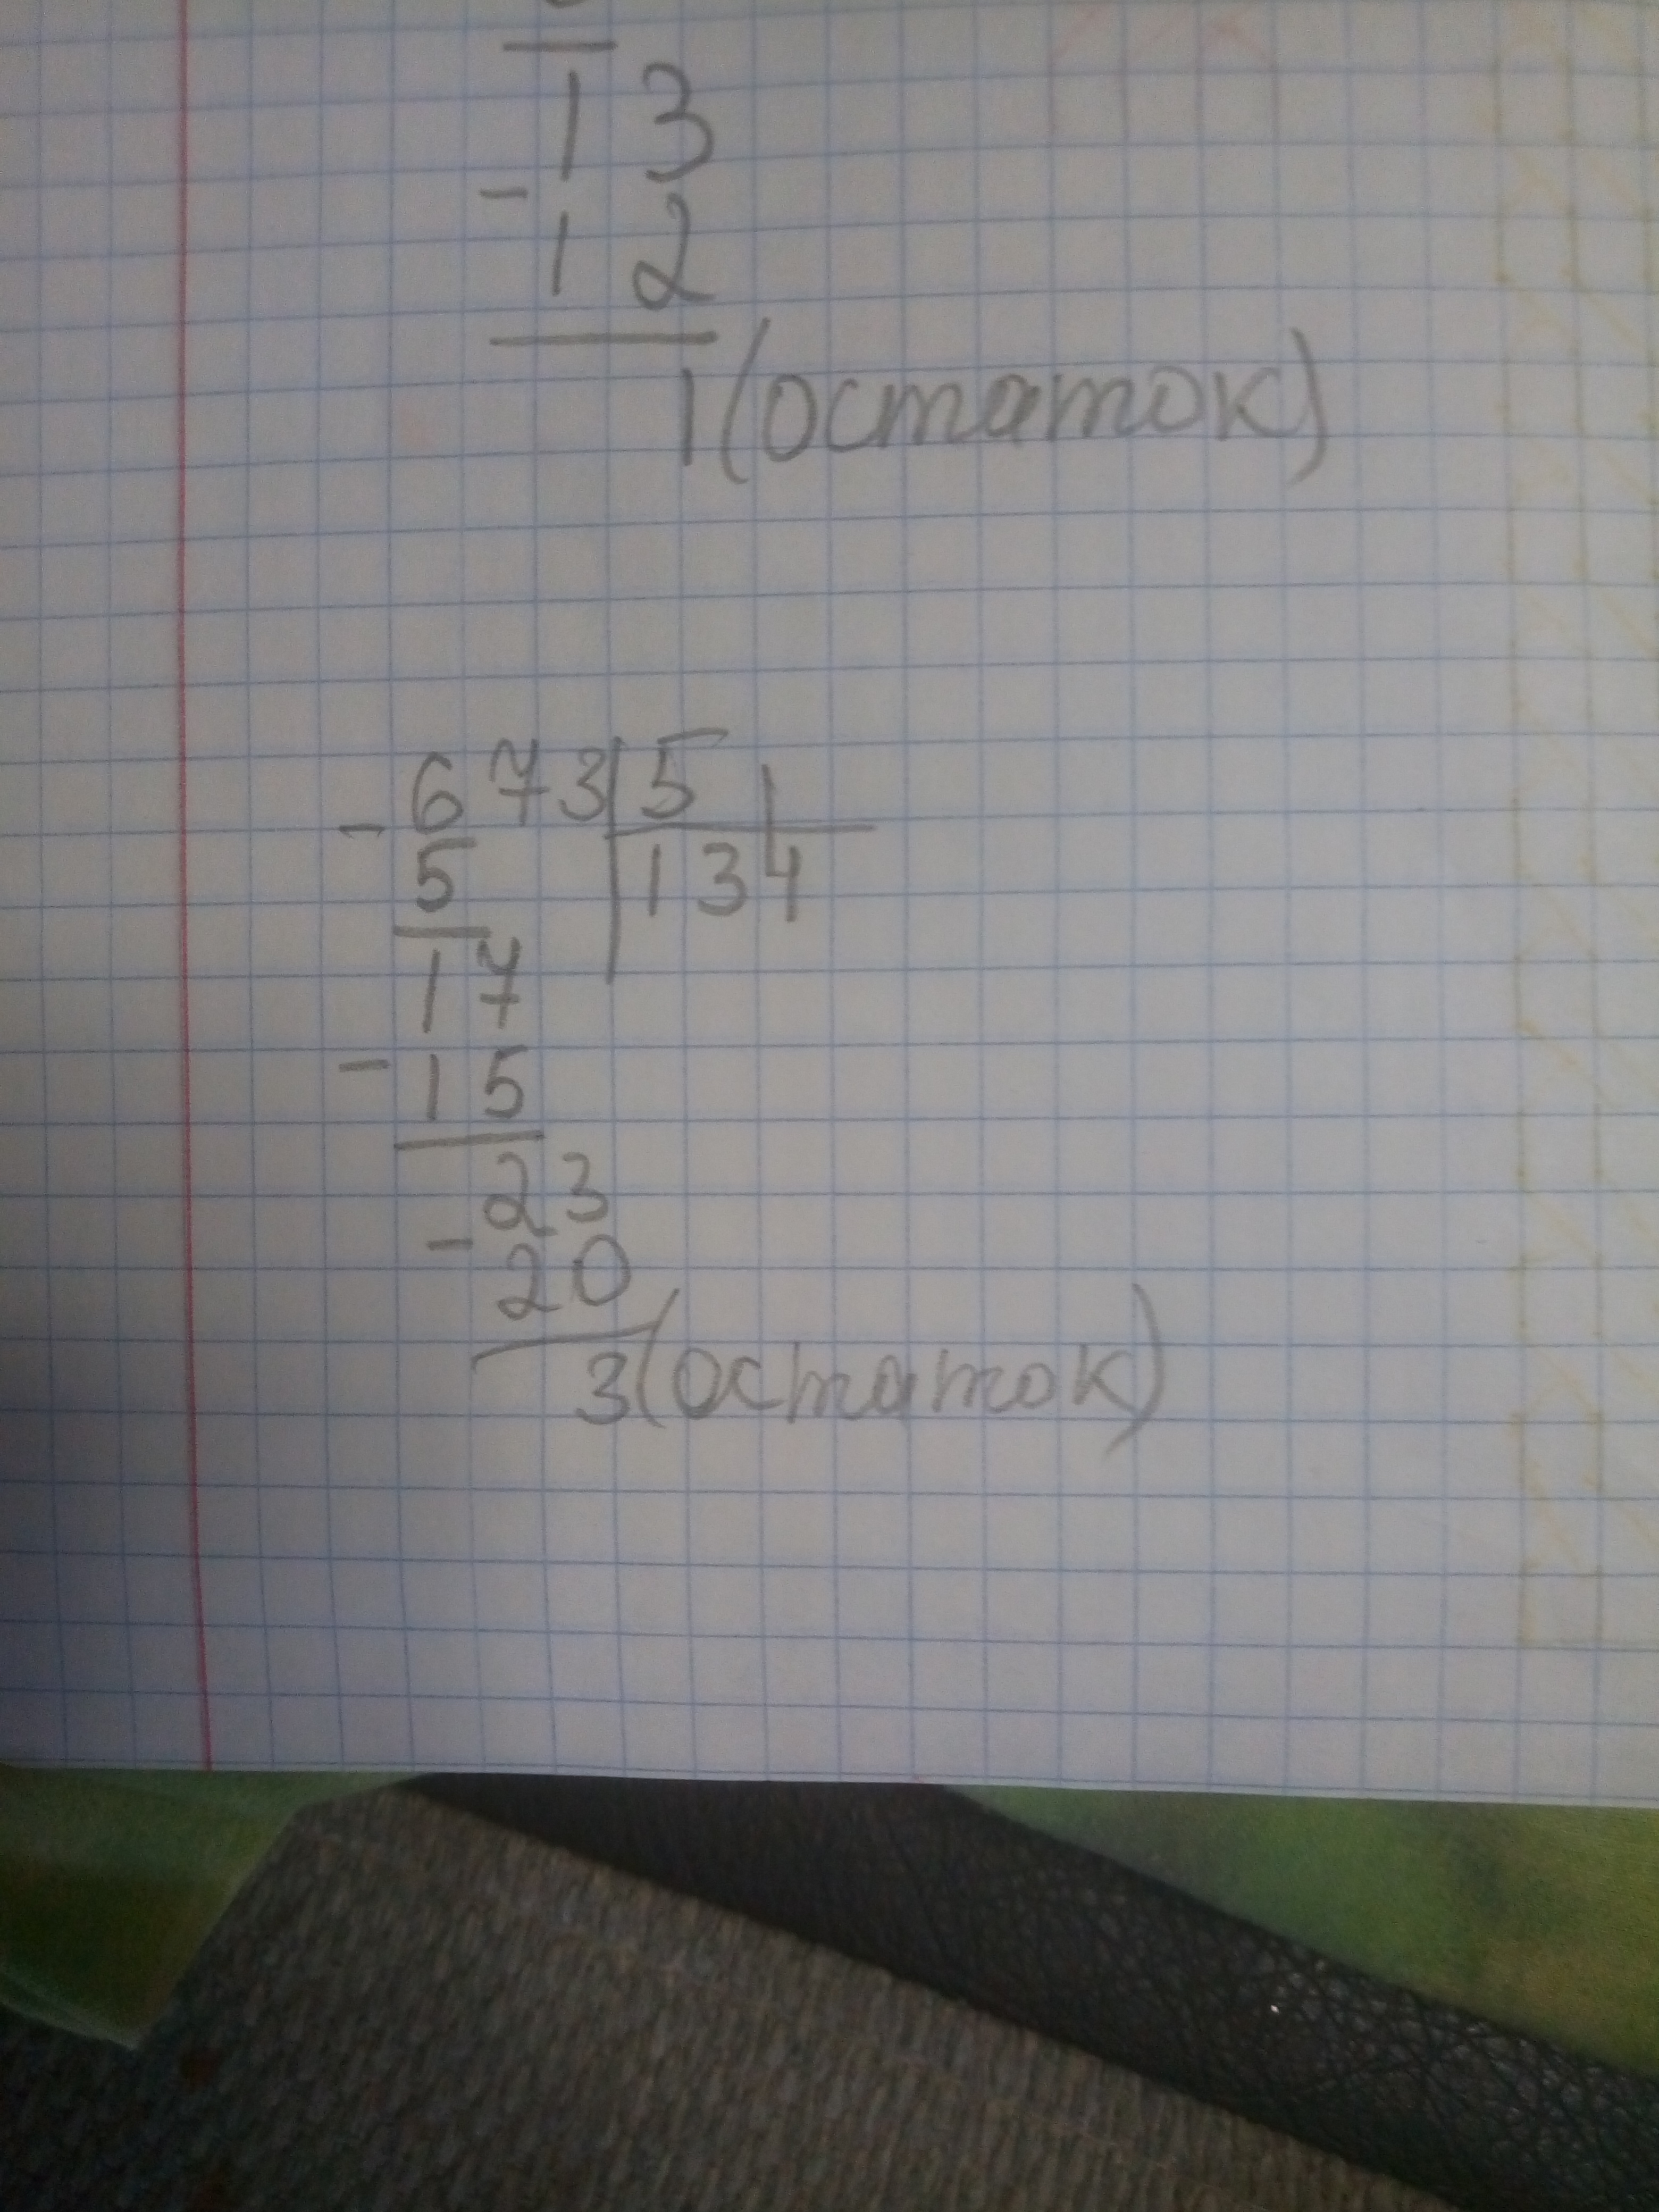 13
- 12
1 (остаток)
- 673 | 5
5 | 134
17
- 15
23
- 20
3 (остаток)